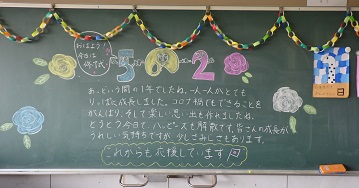 おはよう!
今日は
修了式
3の2
あっという間の1年でしたね。一人一人がとても
りっぱに成長しました。コロナ禍でもできることを
がんばり、そして楽しい思い出も作れましたね。
とうとう今日で、ハッピー2も解散です。皆さんの成長が
うれしい気持ちですが、少しさみしさもあります。
これからも応援しています
日